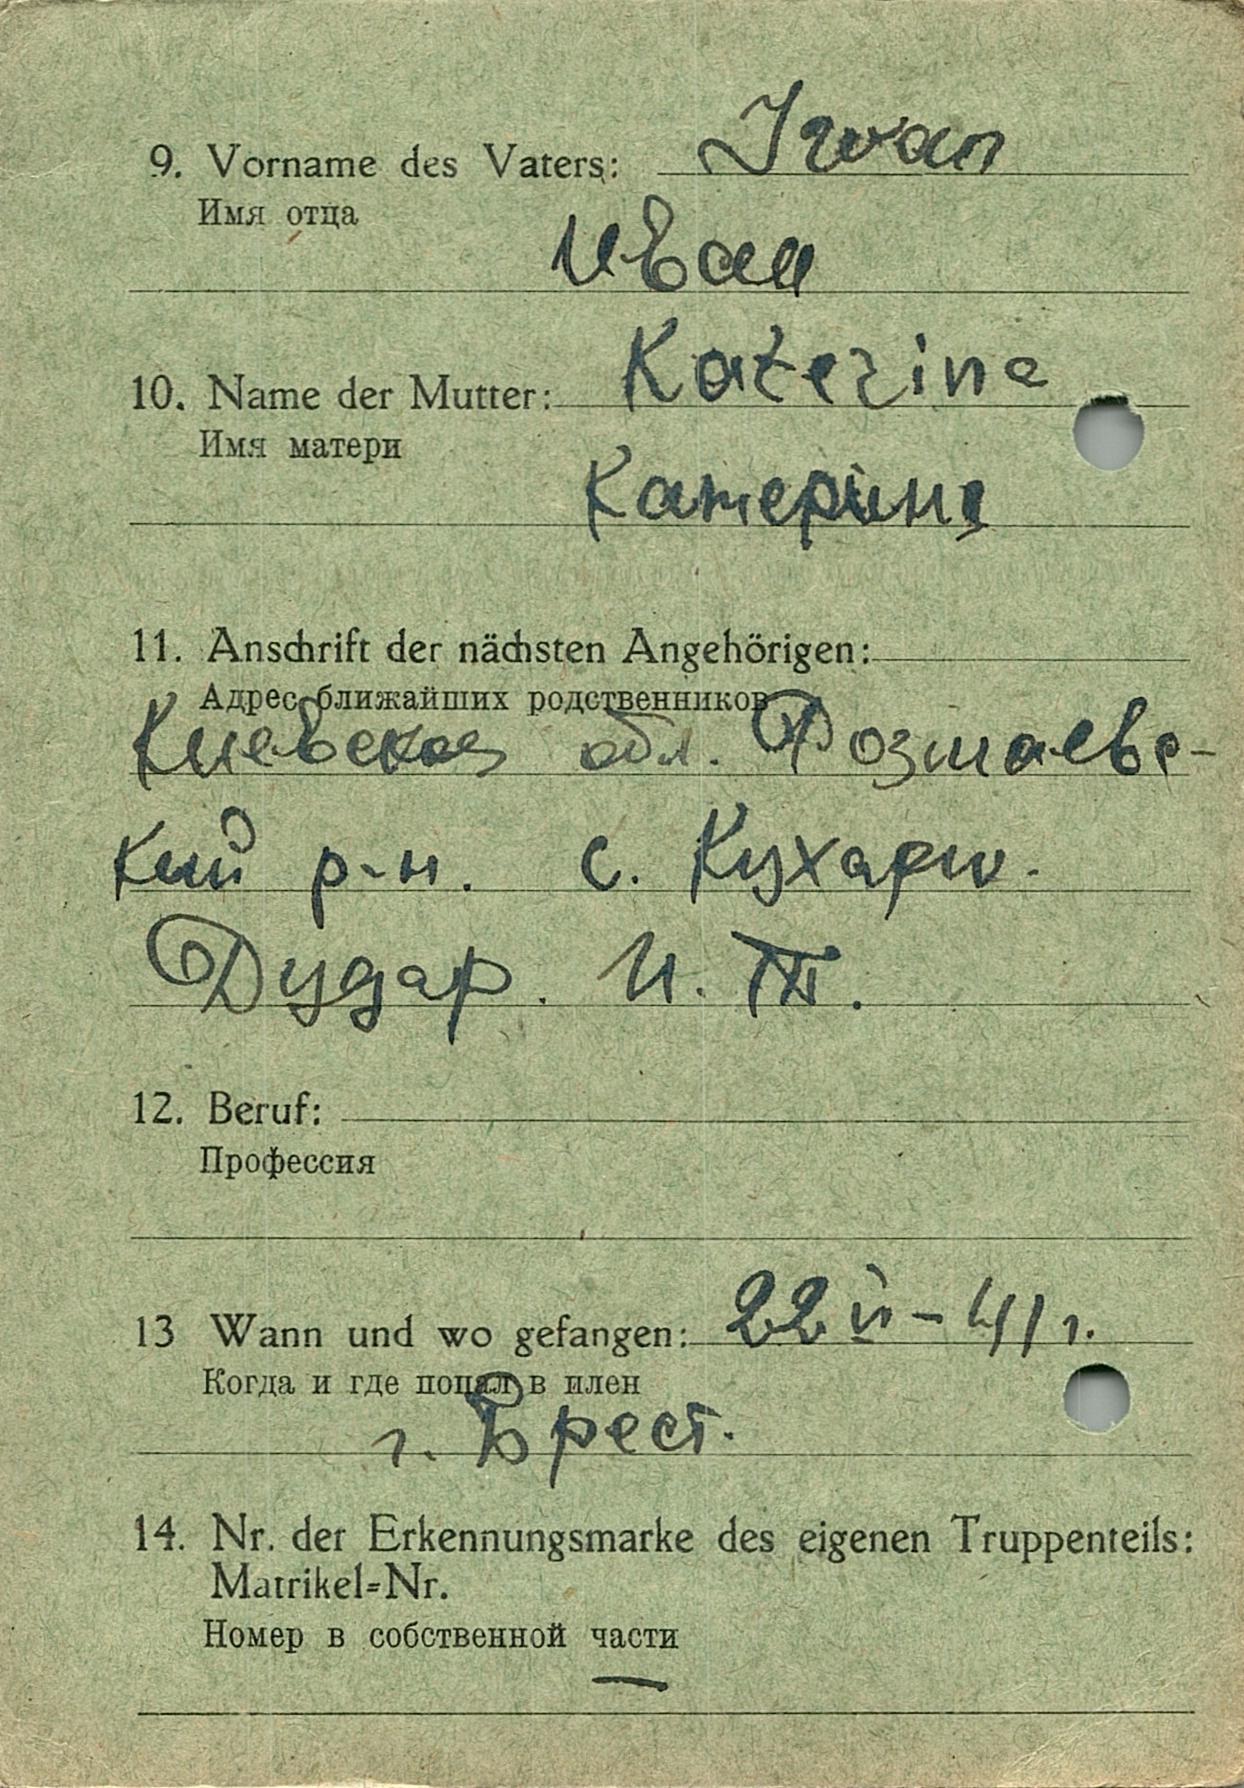 9. Vorname des Vaters: Iwan
Имя отца
Иван
10. Name der Mutter: Katerina
Имя матери
Катерина
11. Anschrift der nächsten Angehörigen:
Адрес ближайших родственников
Киевская обл. Розваевс-
кий р-н. с. Кухари.
Дудар. И.
12. Beruf:
Профессия
13 Wann und wo gefangen: 22 VI - 41 г.
Когда и где попал в плен
г. Брест.
14. Nr. der Erkennungsmarke des eigenen Truppenteils:
Matrikel=Nr.
Номер в собственной части
—